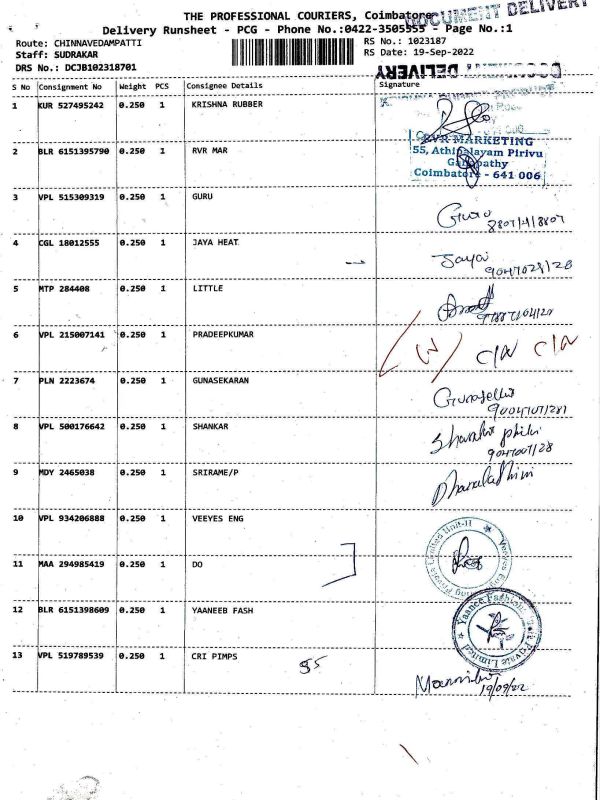 THE PROFESSIONAL COURIERS, Coimbatore
DOCUMENT DELIVERY
Delivery Runsheet - PCG - Phone No.:0422-3505555 - Page No.:1
Route: CHINNAVEDAMPATTI
RS No.: 1023187
Staff: SUDRAKAR
RS Date: 19-Sep-2022
DRS No.: DCJB102318701
DOCUMENT DELIVERY
S No Consignment No Weight PCS Consignee Details Signature
1 KUR 527495242 0.250 1 KRISHNA RUBBER
2 BLR 6151395790 0.250 1 RVR MAR
RVR MARKETING
55, Athipalayam Pirivu
Ganapathy
Coimbatore - 641 006
3 VPL 515309319 0.250 1 GURU
Guru
4 CGL 18012555 0.250 1 JAYA HEAT
Jaya
5 MTP 284408 0.250 1 LITTLE
6 VPL 215007141 0.250 1 PRADEEPKUMAR
7 PLN 2223674 0.250 1 GUNASEKARAN
8 VPL 500176642 0.250 1 SHANKAR
9 MDY 2465038 0.250 1 SRIRAME/P
10 VPL 934206888 0.250 1 VEEYES ENG
11 MAA 294985419 0.250 1 DO
12 BLR 6151398609 0.250 1 YAANEEB FASH
13 VPL 519789539 0.250 1 CRI PIMPS
19/09/22